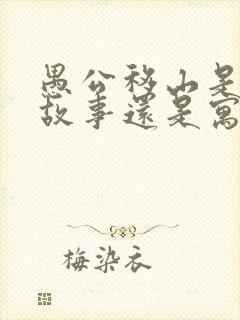 愚公移山是
故事还是寓
梅染衣